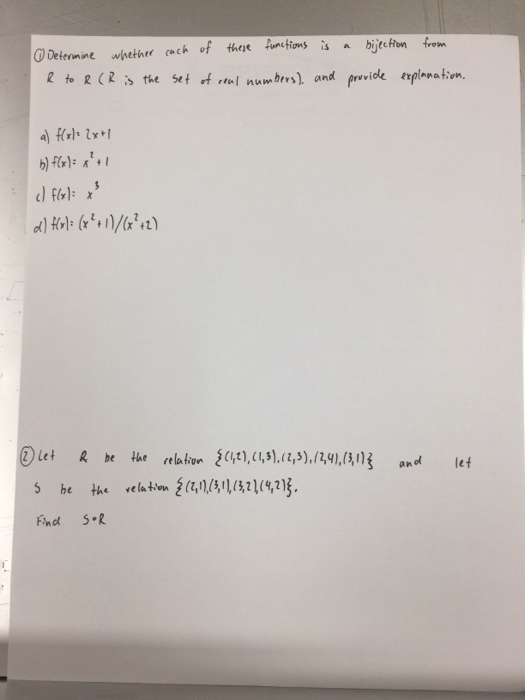 ① Determine whether each of these functions is a bijection from
R to R (R is the set of real numbers). and provide explanation.
a) f(x)= 2x+1
b) f(x)= x²+1
c) f(x)= x³
d) f(x)= (x²+1)/(x²+2)
② Let R be the relation {(1,2),(1,3),(2,3),(2,4),(3,1)} and let
S be the relation {(2,1),(3,1),(3,2),(4,2)}.
Find S∘R